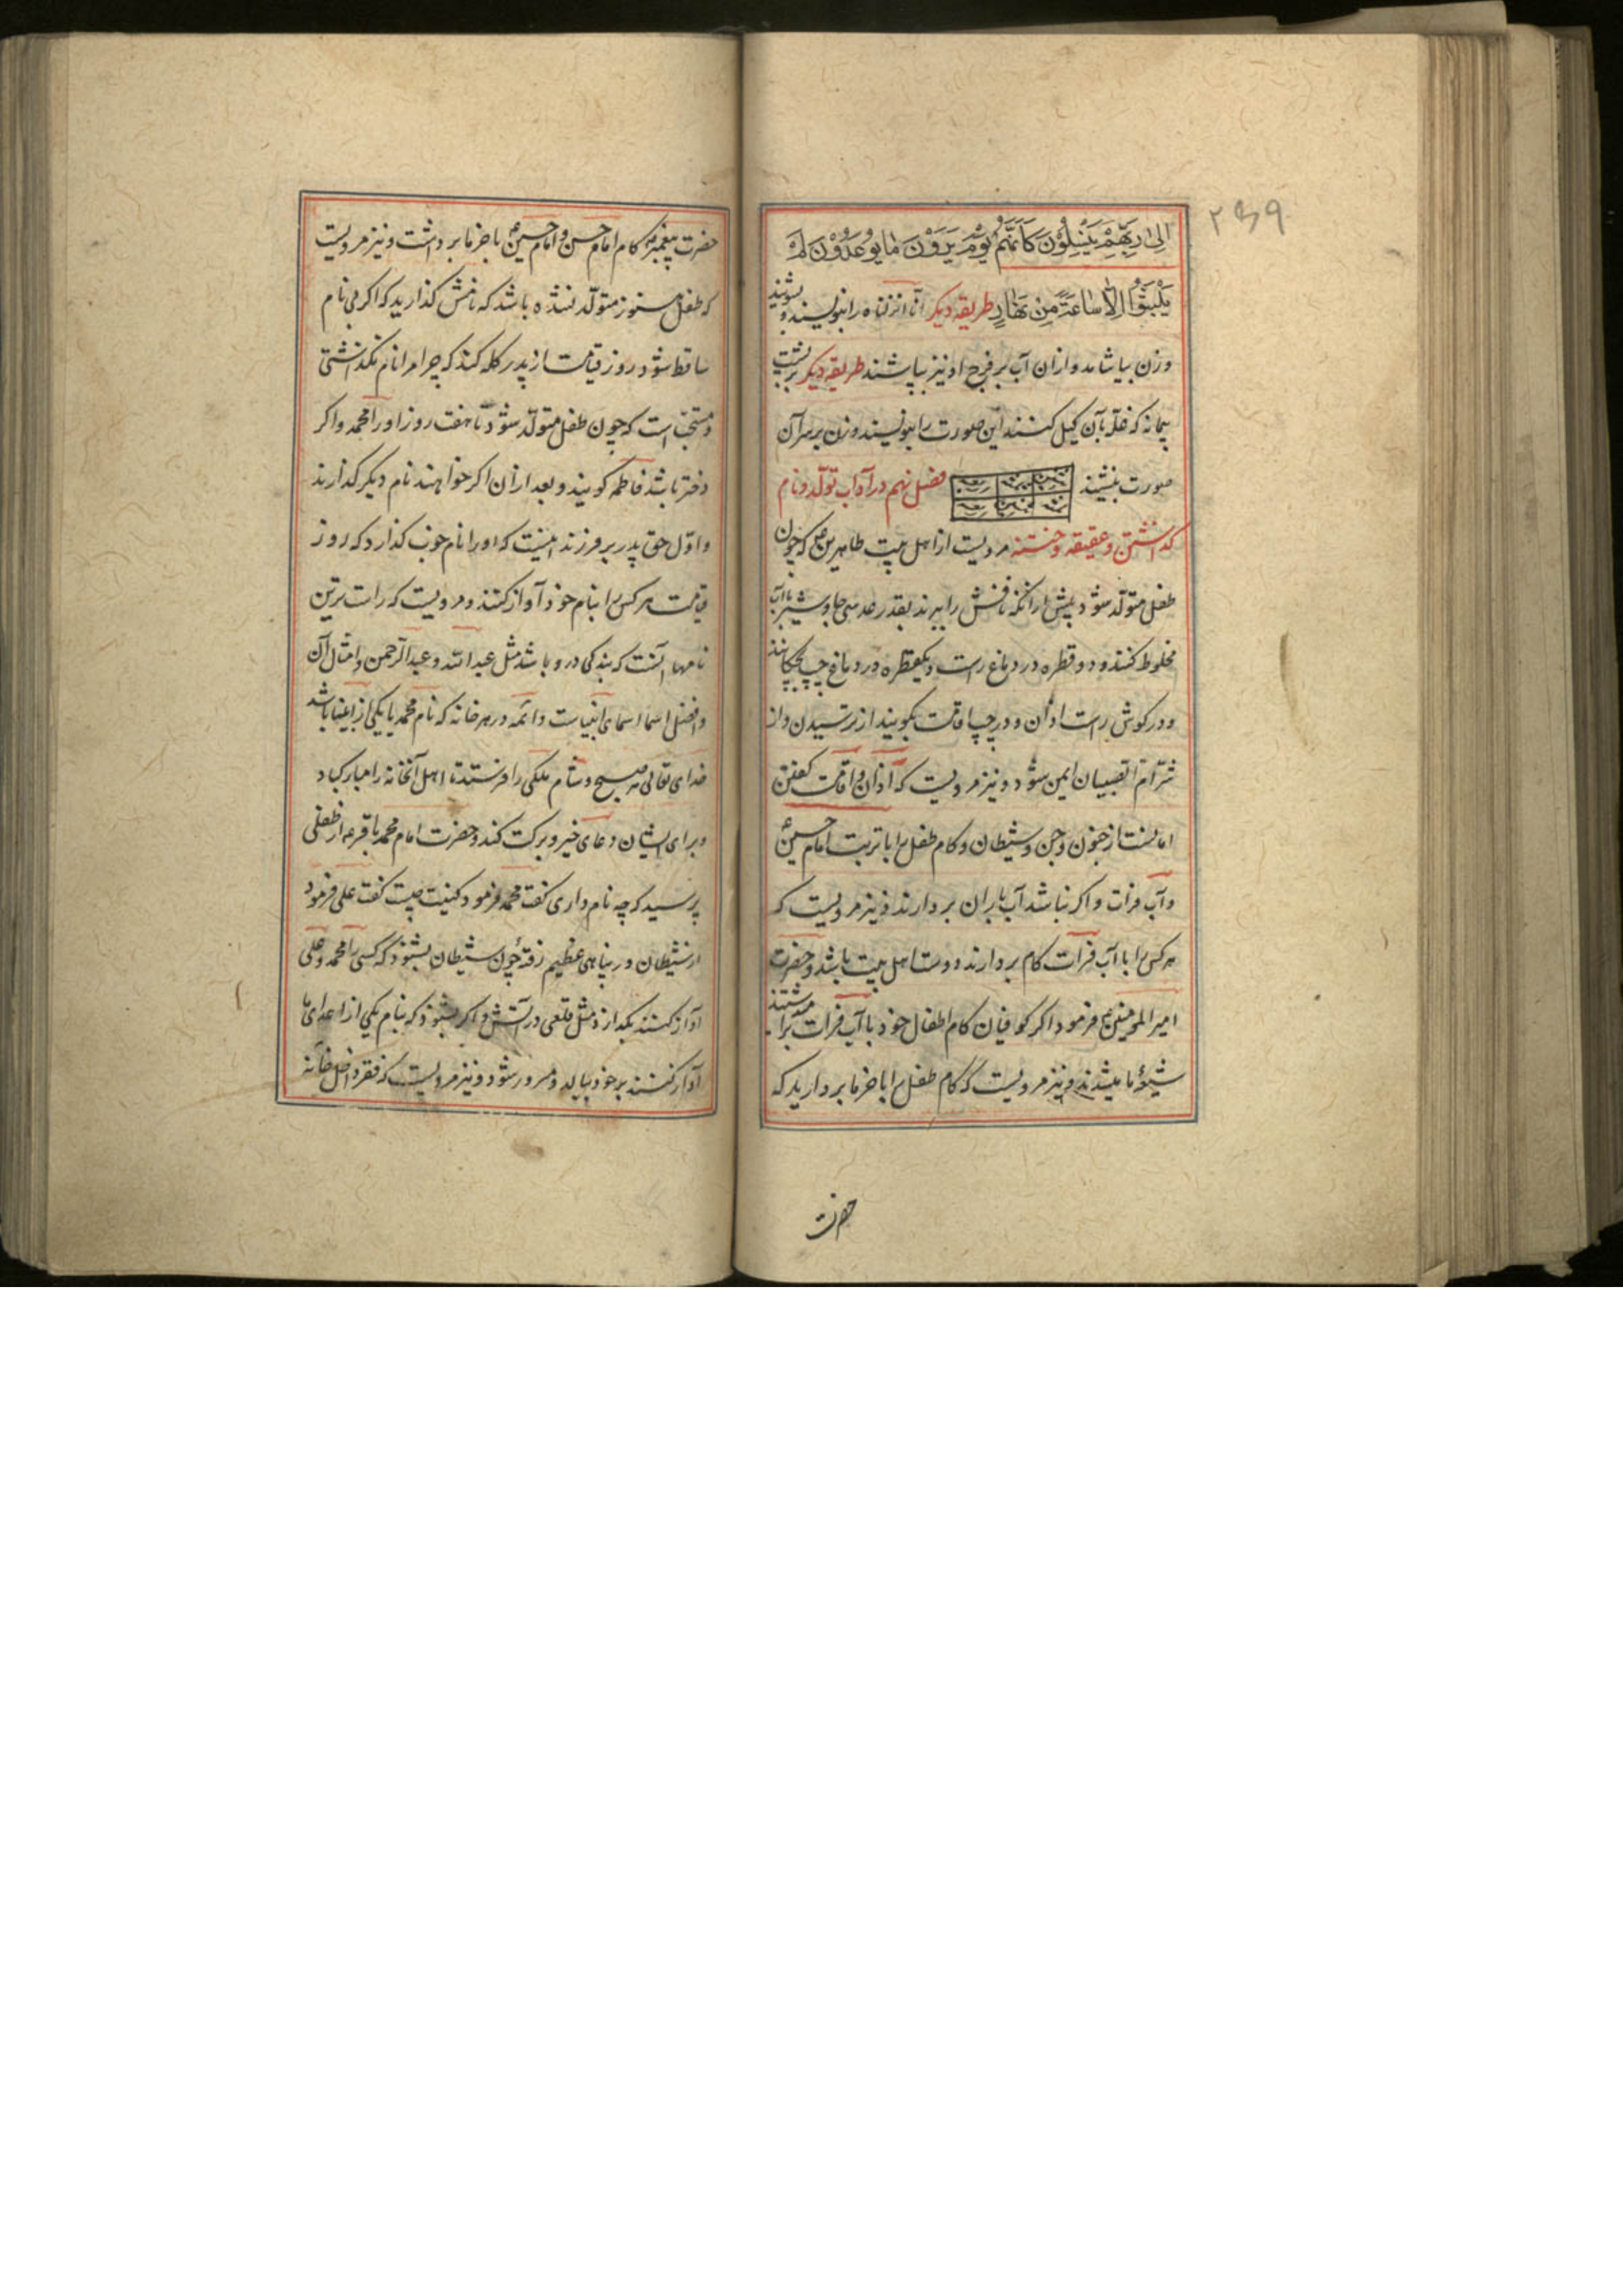 ۲۳۹
الی رَبِّهِمْ یَنْسِلُوْنَ کَاَنَّهُمْ یَوْمَ یَرَوْنَ مٰا یُوعَدُوْنَ لَمْ
یَلْبَثُوْا اِلّا سٰاعَةً مِنْ نَهٰارٍ طریقه دیکر انا انزلناه را بنویسند و بشویند
وزن بیاشامد و ازان آب بر فرج او نیز بپاشند طریقه دیکر بر پشت
پیمانه که غله بآن کیل کنند این صورت را بنویسند و زن بر سر آن
صورت بنشیند فصل نهم در آداب تولّد و نام
کذاشتن و عقیقه و ختنه مرویست از اهل بیت طاهرین ع که چون
طفل متولّد شود پیش ازانکه نافش را ببرند بقدر عدسی جاوشیر بآب
مخلوط کنند و دو قطره در دماغ راست و یکقطره در دماغ چپ بچکانند
و در کوش راست اذان و در چپ اقامت بکویند از ترسیدن و از
شرّ ام الصبیان ایمن شود و نیز مرویست که اذان و اقامت کفتن
امانست از جنون و جن و شیطان و کام طفل را با تربت امام حسین ع
و آب فرات و اکر نباشد آب باران بردارند و نیز مرویست که
هر کس را با آب فرات کام بردارند دوست اهل بیت باشد و حضرت
امیر المومنین ع فرمود اکر کوفیان کام اطفال خود با آب فرات برمیداشتند
شیعهٔ ما میشدند و نیز مرویست که کام طفل را با خرما بردارید که
حضرت
حضرت پیغمبر ص کام امام حسن و امام حسین ع با خرما برداشت و نیز مرویست
که طفل هنوز متولّد نشده باشد که نامش کذارید که اکر بی نام
ساقط شود روز قیامت از پدر کله کند که چرا مرا نام نکذاشتی
و مستحبّ است که چون طفل متولّد شود تا هفت روز او را محمد و اکر
دختر باشد فاطمه کویند و بعد ازان اکر خواهند نام دیکر کذارند
و اوّل حق پدر بر فرزند اینست که او را نام خوب کذارد که روز
قیامت هر کس را بنام خود آواز کنند و مرویست که راست ترین
نامها آنست که بندکی درو باشد مثل عبد الله و عبد الرّحمن و امثال آن
و افضل اسما اسمای انبیاست و ائمه و در هر خانه که نام محمد یا یکی از اینها باشد
خدای تعالی هر صبح و شام ملکی را فرستد تا اهل آنخانه را مبارکباد
و برای ایشان دعای خیر و برکت کند و حضرت امام محمد باقر ع از طفلی
پرسید که چه نام داری کفت محمد فرمود کنیت چیست کفت علی فرمود
از شیطان در پناهی عظیم رفتهٔ چون شیطان بشنود که کسی را محمد و علی
آواز کنند بکدازد مثل قلعی در آتش و اکر بشنود که بنام یکی از اعدای ما
آواز کنند بر خود ببالد و مسرور شود و نیز مرویست که فقر داخل خانه